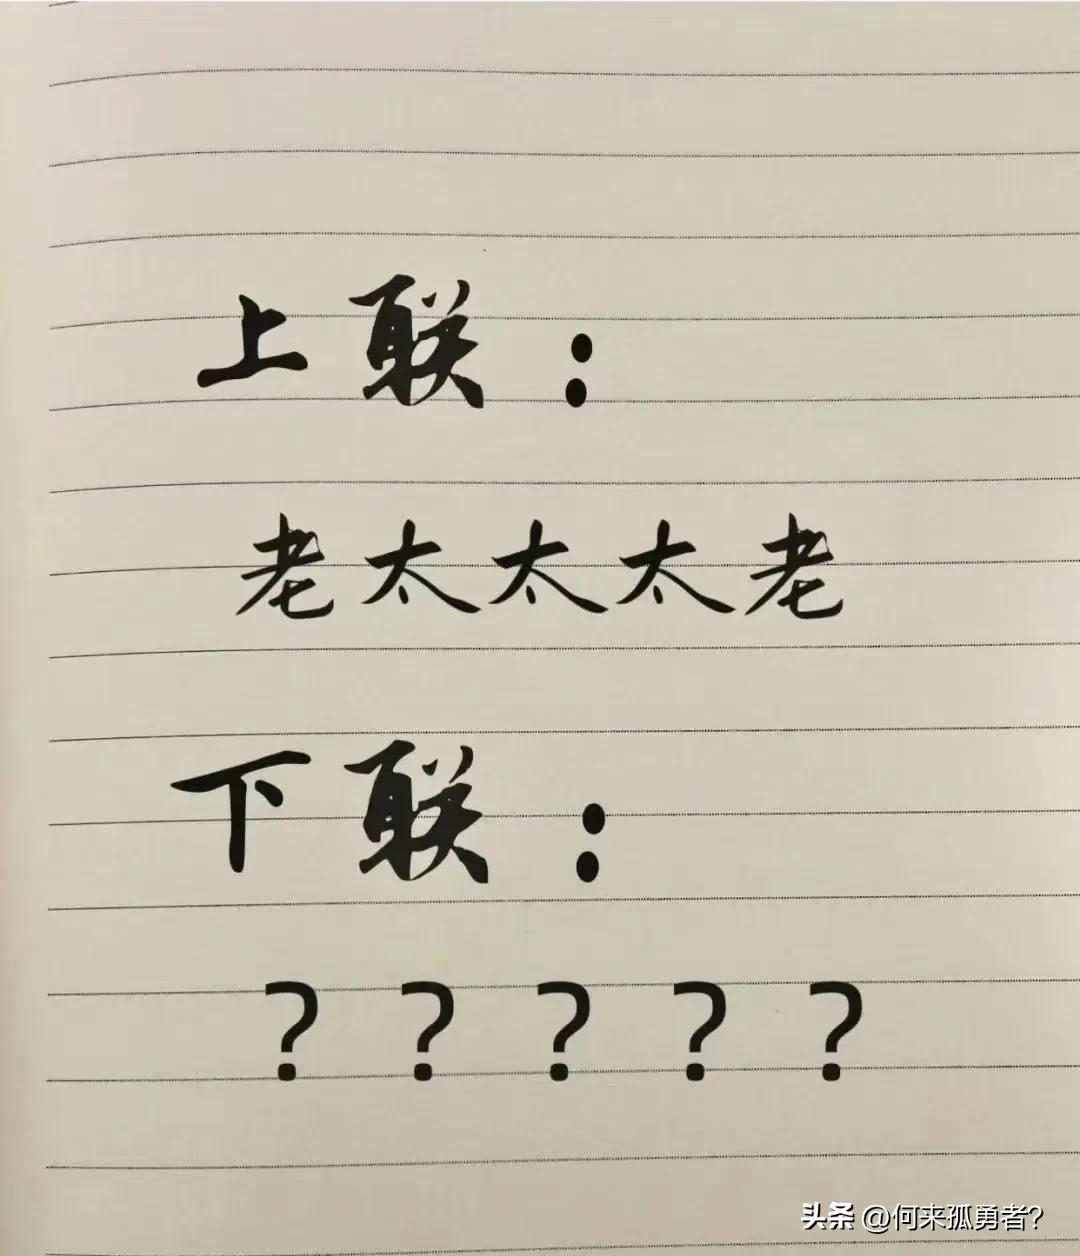 上联：
老太太太老
下联：
？？？？？
头条 @何来孤勇者？